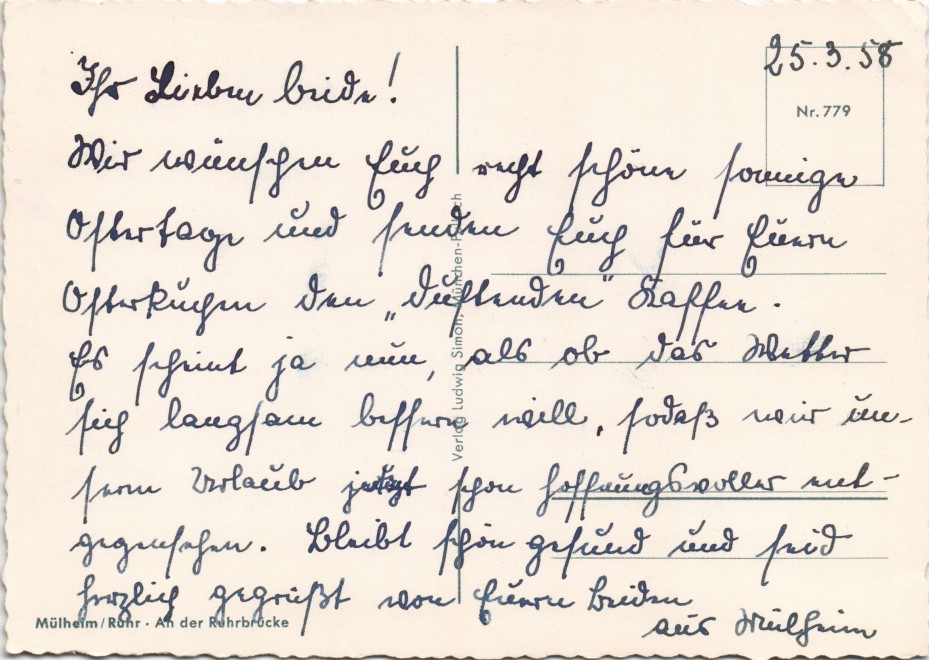 25.3.58
Nr. 779
Ihr Lieben beide!
Wir wünschen Euch recht schöne sonnige
Ostertage und senden Euch für Euern
Osterkuchen den „duftenden" Kaffee.
Es scheint ja nun, als ob das Wetter
sich langsam bessern will, sodaß wir un-
serm Urlaub jetzt schon hoffnungsvoller ent-
gegensehen. Bleibt schön gesund und seid
herzlich gegrüßt von Euern Beiden
aus Mülheim
Mülheim/Ruhr · An der Ruhrbrücke
Verlag Ludwig Simon, München-Pullach